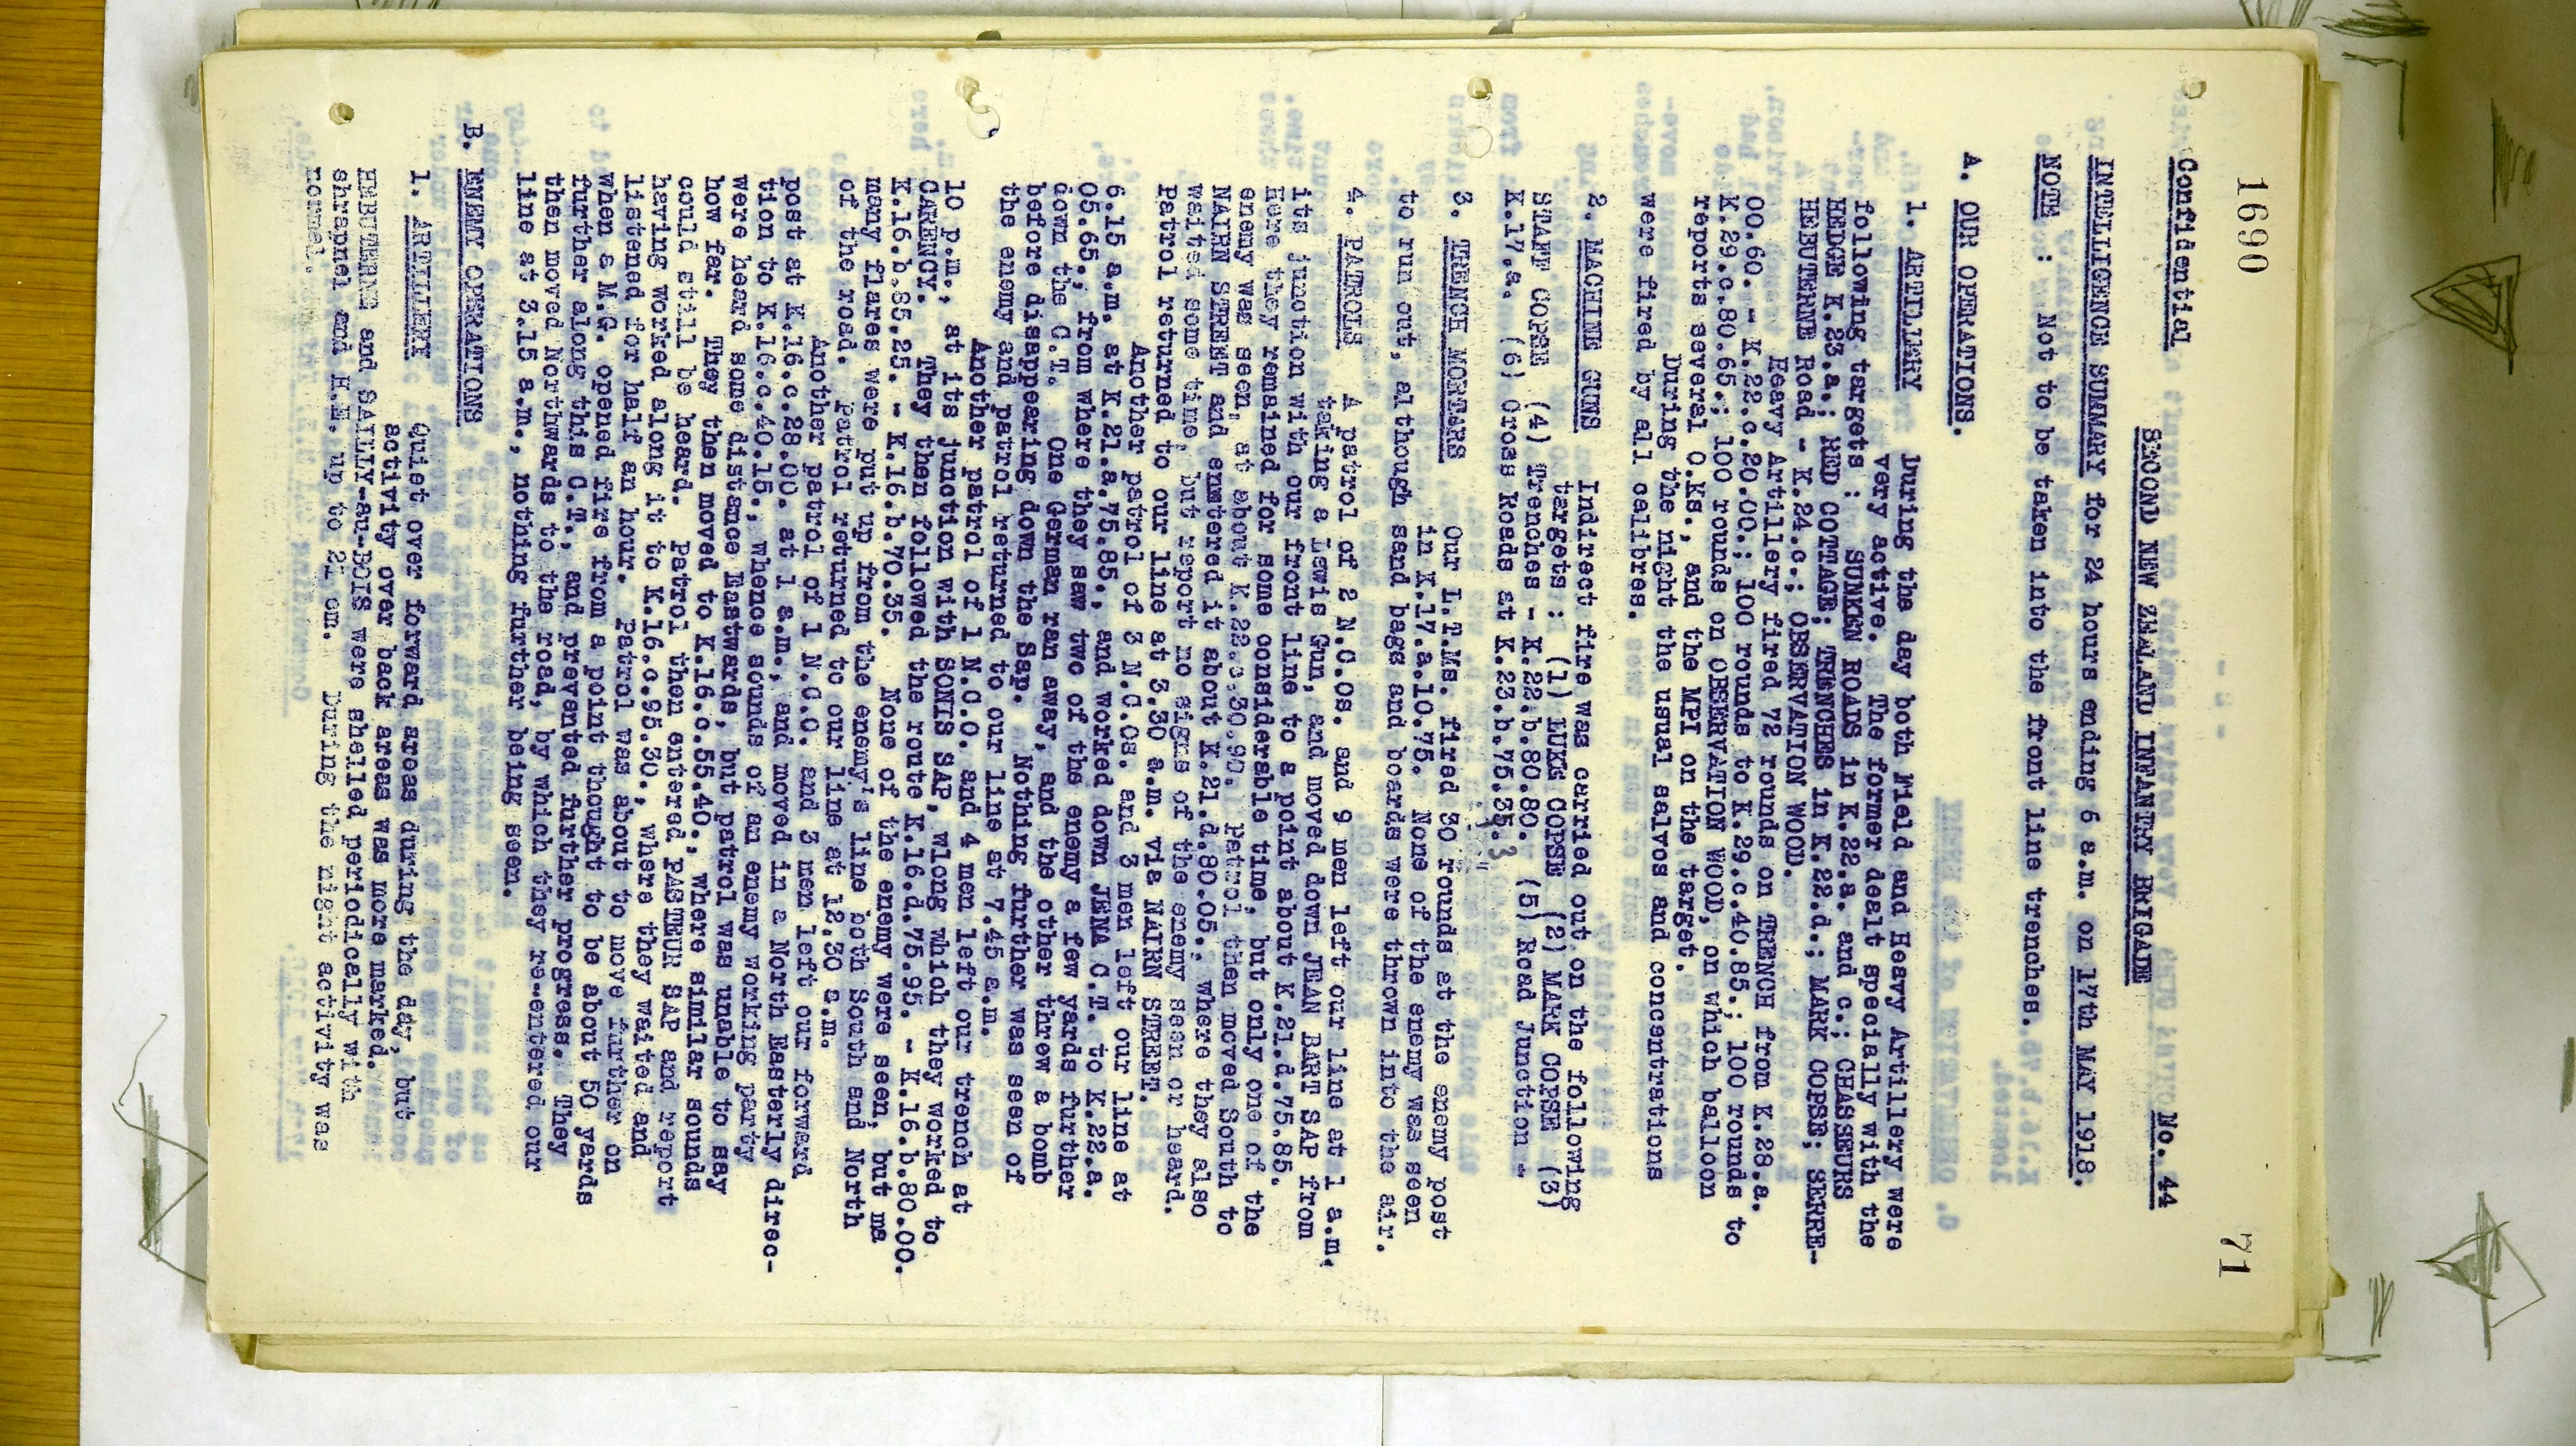 1690
71
Confidential
SECOND NEW ZEALAND INFANTRY BRIGADE
No. 44
INTELLIGENCE SUMMARY for 24 hours ending 6 a.m. on 17th MAY 1918.
NOTE : Not to be taken into the front line trenches.
A. OUR OPERATIONS.
1. ARTILLERY During the day both Field and Heavy Artillery were
very active. The former dealt specially with the
following targets : SUNKEN ROADS in K.22.a. and c.; CHASSEURS
HEDGE K.23.a.; RED COTTAGE; TRENCHES in K.22.d.; MARK COPSE; SERRE-
HEBUTERNE Road - K.24.c.; OBSERVATION WOOD.
Heavy Artillery fired 72 rounds on TRENCH from K.28.a.
00.60. - K.22.c.20.00.; 100 rounds to K.29.c.40.85.; 100 rounds to
K.29.c.80.65.; 100 rounds on OBSERVATION WOOD, on which balloon
reports several O.Ks., and the MPI on the target.
During the night the usual salvos and concentrations
were fired by all calibres.
2. MACHINE GUNS Indirect fire was carried out on the following
targets : (1) LUKE COPSE (2) MARK COPSE (3)
STAFF COPSE (4) Trenches - K.22.b.80.80. (5) Road Junction -
K.17.a. (6) Cross Roads at K.23.b.75.35.
3. TRENCH MORTARS Our L.T.Ms. fired 30 rounds at the enemy post
in K.17.a.10.75. None of the enemy was seen
to run out, although sand bags and boards were thrown into the air.
4. PATROLS A patrol of 2 N.C.Os. and 9 men left our line at 1 a.m.
taking a Lewis Gun, and moved down JEAN BART SAP from
its junction with our front line to a point about K.21.d.75.85.
Here they remained for some considerable time, but only one of the
enemy was seen, at about K.22.c.30.90. Patrol then moved South to
NAIRN STREET and entered it about K.21.d.80.05., where they also
waited some time, but report no signs of the enemy seen or heard.
Patrol returned to our line at 3.30 a.m. via NAIRN STREET.
Another patrol of 3 N.C.Os. and 3 men left our line at
6.15 a.m. at K.21.a.75.85., and worked down JENA C.T. to K.22.a.
05.65., from where they saw two of the enemy a few yards further
down the C.T. One German ran away, and the other threw a bomb
before disappearing down the Sap. Nothing further was seen of
the enemy and patrol returned to our line at 7.45 a.m.
Another patrol of 1 N.C.O. and 4 men left our trench at
10 p.m., at its junction with SONIS SAP, wlong which they worked to
CARENCY. They then followed the route K.16.d.75.95. - K.16.b.80.00.
K.16.b.85.25. - K.16.b.70.35. None of the enemy were seen, but ma
many flares were put up from the enemy's line both South and North
of the road. Patrol returned to our line at 12.30 a.m.
Another patrol of 1 N.C.O. and 3 men left our forward
post at K.16.c.28.00. at 1 a.m., and moved in a North Easterly direc-
tion to K.16.c.40.15., whence sounds of an enemy working party
were heard some distance Eastwards, but patrol was unable to say
how far. They then moved to K.16.c.55.40., where similar sounds
could still be heard. Patrol then entered PASTEUR SAP and report
having worked along it to K.16.c.95.30., where they waited and
listened for half an hour. Patrol was about to move further on
when a M.G. opened fire from a point thought to be about 50 yards
further along this C.T., and prevented further progress. They
then moved Northwards to the road, by which they re-entered our
line at 3.15 a.m., nothing further being seen.
B. ENEMY OPERATIONS
1. ARTILLERY Quiet over forward areas during the day, but
activity over back areas was more marked.
HEBUTERNE and SAILLY-au-BOIS were shelled periodically with
shrapnel and H.E. up to 21 cm. During the night activity was
normal.